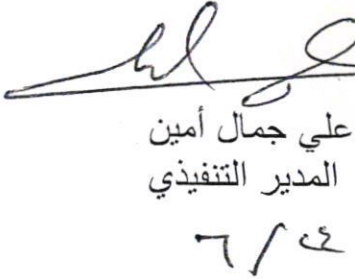 علي جمال أمين
المدير التنفيذي
٦ / ٢٤